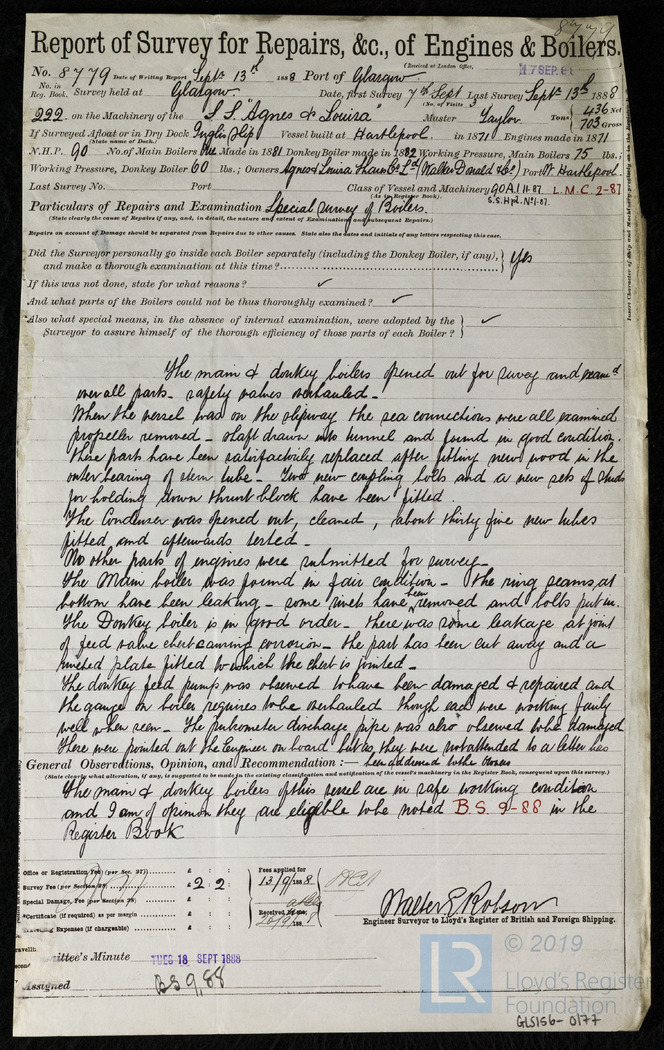 8779
Report of Survey for Repairs, &c., of Engines & Boilers.
(Received at London Office, 17 SEP. 88
No. 8779 Date of Writing Report Septr 13th 1888 Port of Glasgow
No. in Reg. Book. Survey held at Glasgow. Date, first Survey 7th Sept Last Survey Septr 13th 1888
(No. of Visits 3
222 on the Machinery of the S.S. "Agnes & Louisa" Master Taylor Tons 436 Net 703 Gross
If Surveyed Afloat or in Dry Dock Inglis Slip Vessel built at Hartlepool. in 1871 Engines made in 1871
(State name of Dock.)
N.H.P. 90 No. of Main Boilers One Made in 1881 Donkey Boiler made in 1882 Working Pressure, Main Boilers 75 lbs.;
Working Pressure, Donkey Boiler 60 lbs.; Owners Agnes & Louisa Steam Co Ld (Walker Donald & Co) Port W. Hartlepool.
Last Survey No. Port Class of Vessel and Machinery 90A1 11.87 L.M.C. 2-87
(As to Register Book). S.S. Hpl. No 1-87.
Particulars of Repairs and Examination Special Survey of Boilers.
(State clearly the cause of Repairs if any, and, in detail, the nature and extent of Examinations and subsequent Repairs.)
Repairs on account of Damage should be separated from Repairs due to other causes. State also the dates and initials of any letters respecting this case.
Did the Surveyor personally go inside each Boiler separately (including the Donkey Boiler, if any), and make a thorough examination at this time? yes
If this was not done, state for what reasons? ✓
And what parts of the Boilers could not be thus thoroughly examined? ✓
*Also what special means, in the absence of internal examination, were adopted by the
Surveyor to assure himself of the thorough efficiency of those parts of each Boiler? ✓
The main & donkey boilers opened out for survey and examd
over all parts - safety valves overhauled -
When the vessel was on the slipway the sea connections were all examined
propeller removed - shaft drawn into tunnel and found in good condition.
These parts have been satisfactorily replaced after fitting new wood in the
outer bearing of stern tube - Two new coupling bolts and a new sets of studs
for holding down thrust block have been fitted.
The Condenser was opened out, cleaned, about thirty five new tubes
fitted and afterwards tested -
No other parts of engines were submitted for survey -
The Main boiler was found in fair condition - The ring seams at
bottom have been leaking - some rivets have been removed and bolts put in.
The Donkey boiler is in good order - There was some leakage at joint
of feed valve chest causing corrosion - the part has been cut away and a
riveted plate fitted to which the chest is jointed -
The donkey feed pump was observed to have been damaged & repaired and
the gauge on boiler requires to be overhauled though each were working fairly
well when seen - The hydrometer discharge pipe was also observed to be damaged
These were pointed out the Engineer on board but as they were not attended to a letter has
General Observations, Opinion, and Recommendation:— been addressed to the Owners
(State clearly what alteration, if any, is suggested to be made in the existing classification and notification of the vessel's machinery in the Register Book, consequent upon this survey.)
The main & donkey boilers of this vessel are in safe working condition
and I am of opinion they are eligible to be noted B.S. 9-88 in the
Register Book
Office or Registration Fee (per Sec. 27) £ : :
Survey Fee (per Section 28) £ 2 : 2 :
Special Damage, Fee (per Section 28) £ : :
*Certificate (if required) as per margin £ : :
Travelling Expenses (if chargeable) £ : :
Fees applied for
13/9/1888
Received by me,
20/9/1888
Walter E. Robson
Engineer Surveyor to Lloyd's Register of British and Foreign Shipping.
ittee's Minute TUES 18 SEPT 1888
Assigned BS 9/88
Insert Character of Ship and Machinery precisely as in the Re
LR © 2019
Lloyd's Register
Foundation
GLS156-0177